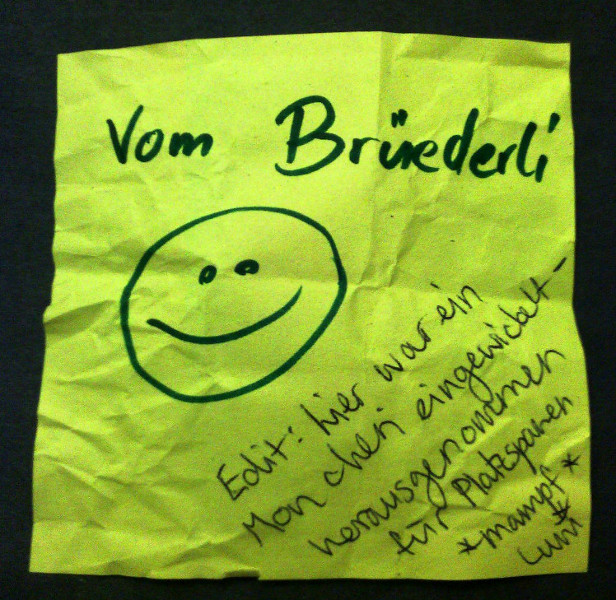 Vom Brüederli
Edit: hier war ein
Mon cheri eingewickelt -
herausgenommen
für Platzsparen
*mampf*